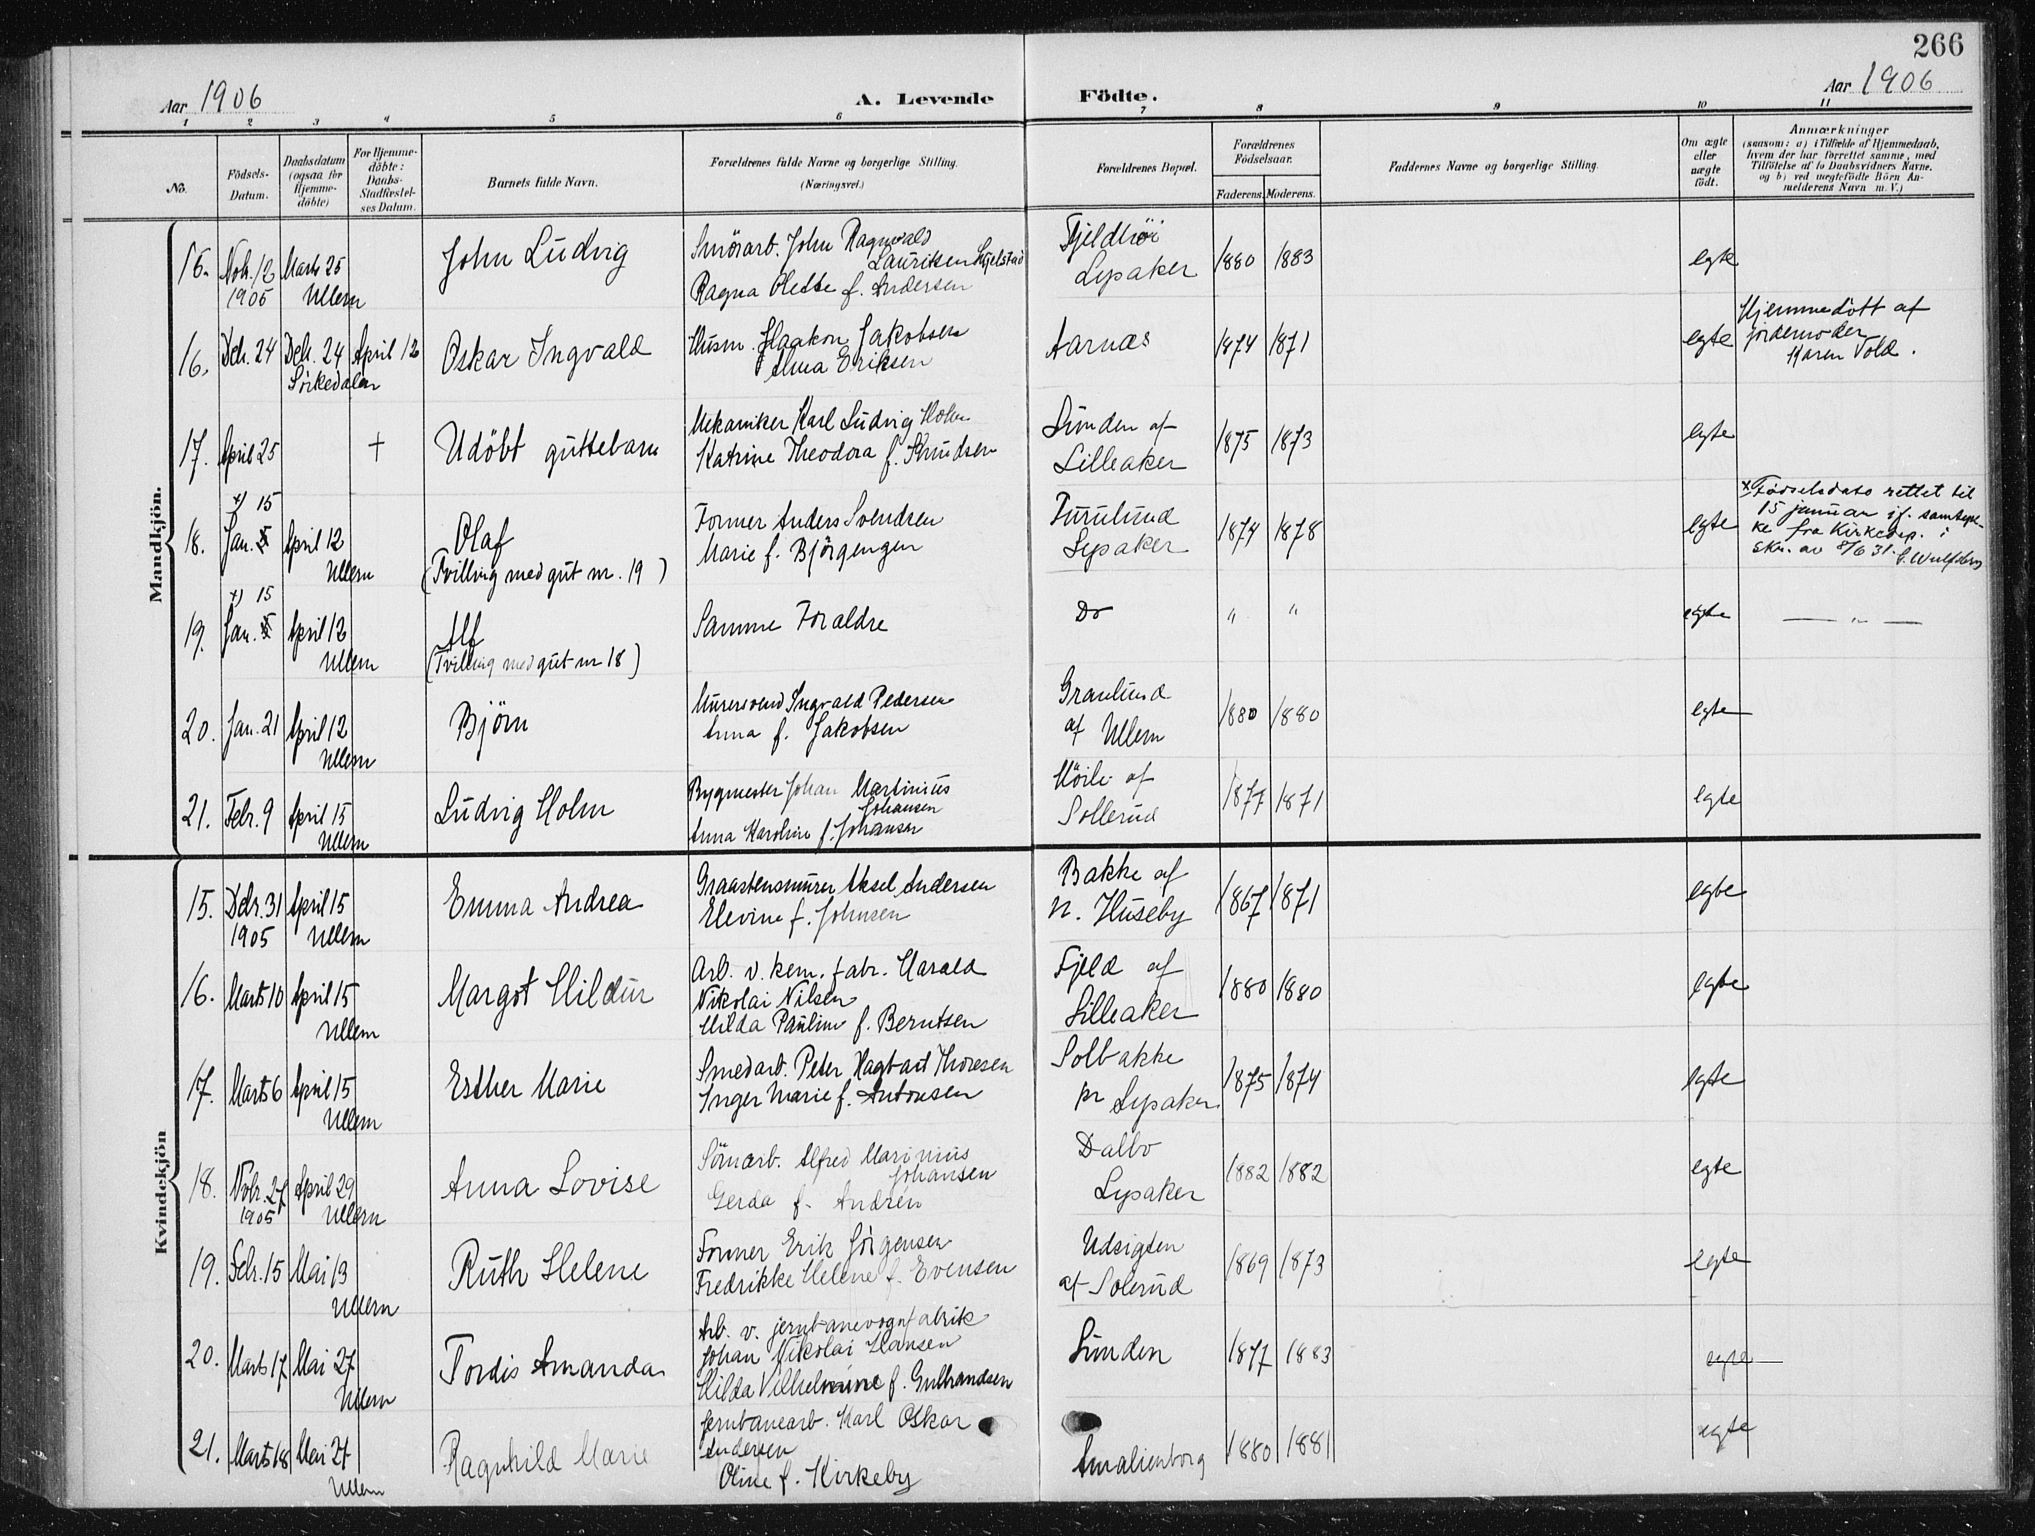 266
Aar 1906
A. Levende Födte.
Aar 1906
1 2 3 4 5 6 7 8 9 10 11
No.
Födsels-
Datum.
Daabsdatum
(ogsaa for
Hjemme-
döbte)
For Hjemme-
döbte:
Daabs-
Stadfæstel-
ses Datum.
Barnets fulde Navn.
Forældrenes fulde Navne og borgerlige Stilling.
(Næringsvei.)
Forældrenes Bopæl.
Forældrenes
Födselsaar.
Faderens. Moderens.
Faddernes Navne og borgerlige Stilling.
Om ægte
eller
uægte
födt.
Anmærkninger
(saasom: a) i Tilfælde af Hjemmedaab,
hvem der har forrettet samme, med
Tilföielse af to Daabsvidners Navne,
og b) ved uægtefödte Börn An-
melderens Navn m. V.)
Mandkjön.
16. Novbr. 12 Marts 25 John Ludvig Smörarb. John Ragnvald Fjeldhöi 1880 1883 egte
1905 Ullern Lauritsen Skjelstad Lysaker
Ragna Olette f. Andersen
16. Debr. 24 Debr. 24 April 12 Oskar Ingvald Husm. Haakon Jakobsen Aarnæs 1874 1871 egte Hjemmedöbt af
Sörkedalen Alma Eriksen jordemoder
Karen Vold.
17. April 25 + Udöbt guttebarn Mekaniker Karl Ludvig Holm Lunden af 1875 1873 egte
Katrine Theodora f. Knudsen Lilleaker
x) 15
18. Jan. 5 April 12 Olaf Former Anders Svendsen Furulund 1874 1878 egte x Fødselsdato rettet til
Ullern (Tvilling med gut nr. 19) Marie f. Björgengen Lysaker 15 januar if. samtyk-
ke fra Kirkedep. i
skr. av 8/6 31.
x) 15
19. Jan. 5 April 12 Alf Samme Foraldre Do " " egte — " —
Ullern (Tvilling med gut nr 18)
20. Jan. 21 April 12 Björn Murersvend Ingvald Pedersen Granlund 1880 1880 egte
Ullern Anna f. Jakobsen af Ullern
21. Febr. 9 April 15 Ludvig Holm Bygmester Johan Martinius af 1877 1871 egte
Ullern Johansen Sollerud
Anna Karoline f. Johansen
Kvindekjön
15. Debr. 31 April 15 Emma Andrea Graastensmurer Aksel Andersen Bakke af 1867 1871 egte
1905 Ullern Elevine f. Johnsen N. Huseby
16. Marts 10 April 15 Margot Hildur Arb. v. kem. fabr. Harald Fjeld af 1880 1880 egte
Ullern Nikolai Nilsen Lilleaker
Hilda Pauline f. Berntsen
17. Marts 6 April 15 Esther Marie Smedarb. Peter Hagbart Thoresen Solbakke 1875 1874 egte
Ullern Inger Marie f. Antonsen pr Lysaker
18. Nobr. 27 April 29 Anna Lovise Alfred Marinius Dalbo 1882 1882 egte
1905 Ullern Johansen Lysaker
Gerda f. Andrén
19. Febr. 15 Mai 13 Ruth Helene Former Erik Jörgensen Udsigten 1869 1873 egte
Ullern Fredrikke Helene f. Evensen af Solerud
20. Marts 17 Mai 27 Tordis Amanda Arb. v. jernbanevognfabrik Lunden 1877 1883 egte
Ullern Johan Nikolai Hansen
Hilda Vilhelmine f. Gulbrandsen
21. Marts 18 Mai 27 Ragnhild Marie Jernbanearb. Karl Oskar Amalienborg 1880 1881 egte
Ullern Andersen
Oline f. Kirkeby